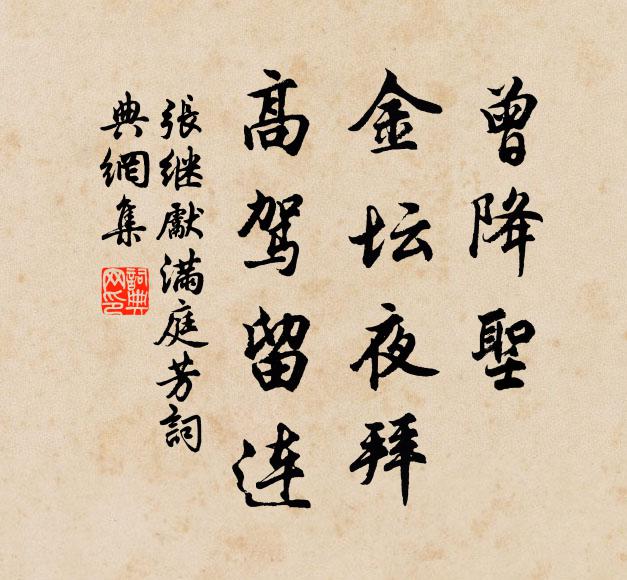 曾降聖
金坛夜拜
高驾留连
張继獻滿庭芳詞
典網集
詞典网印